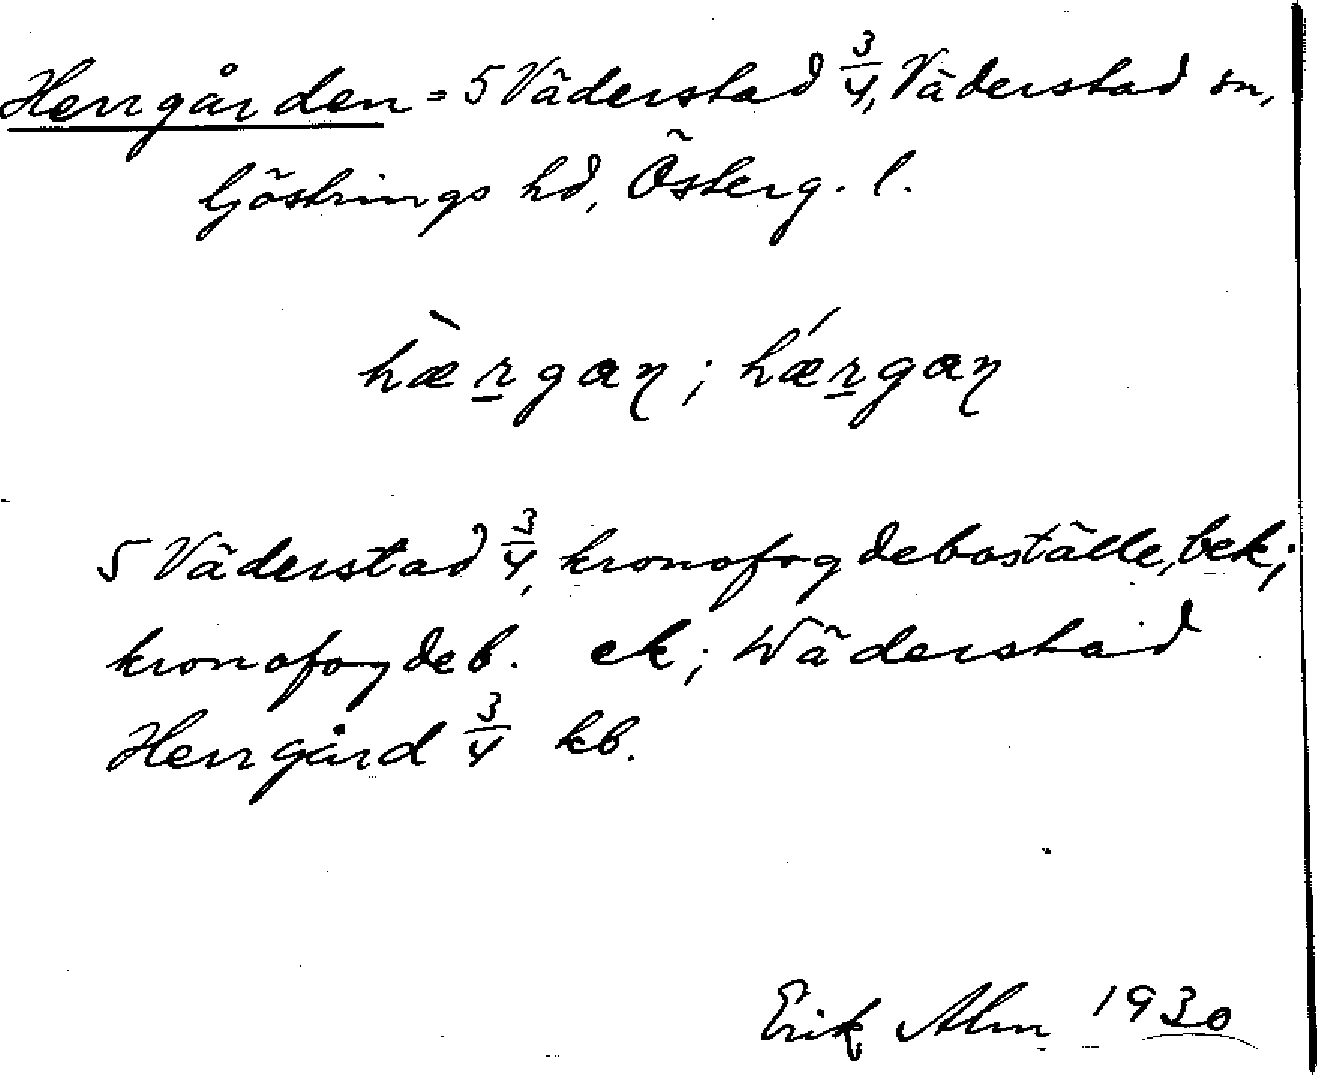 Herrgården = 5 Väderstad 3/4, Väderstad sn,
Göstrings hd, Österg. l.
hæ̀rgaɳ; hǽrgaɳ
5 Väderstad 3/4, kronofogdeboställe, bek;
kronofogdeb. ek; Wäderstad
Herrgård 3/4 kb.
Erik Alm 1930